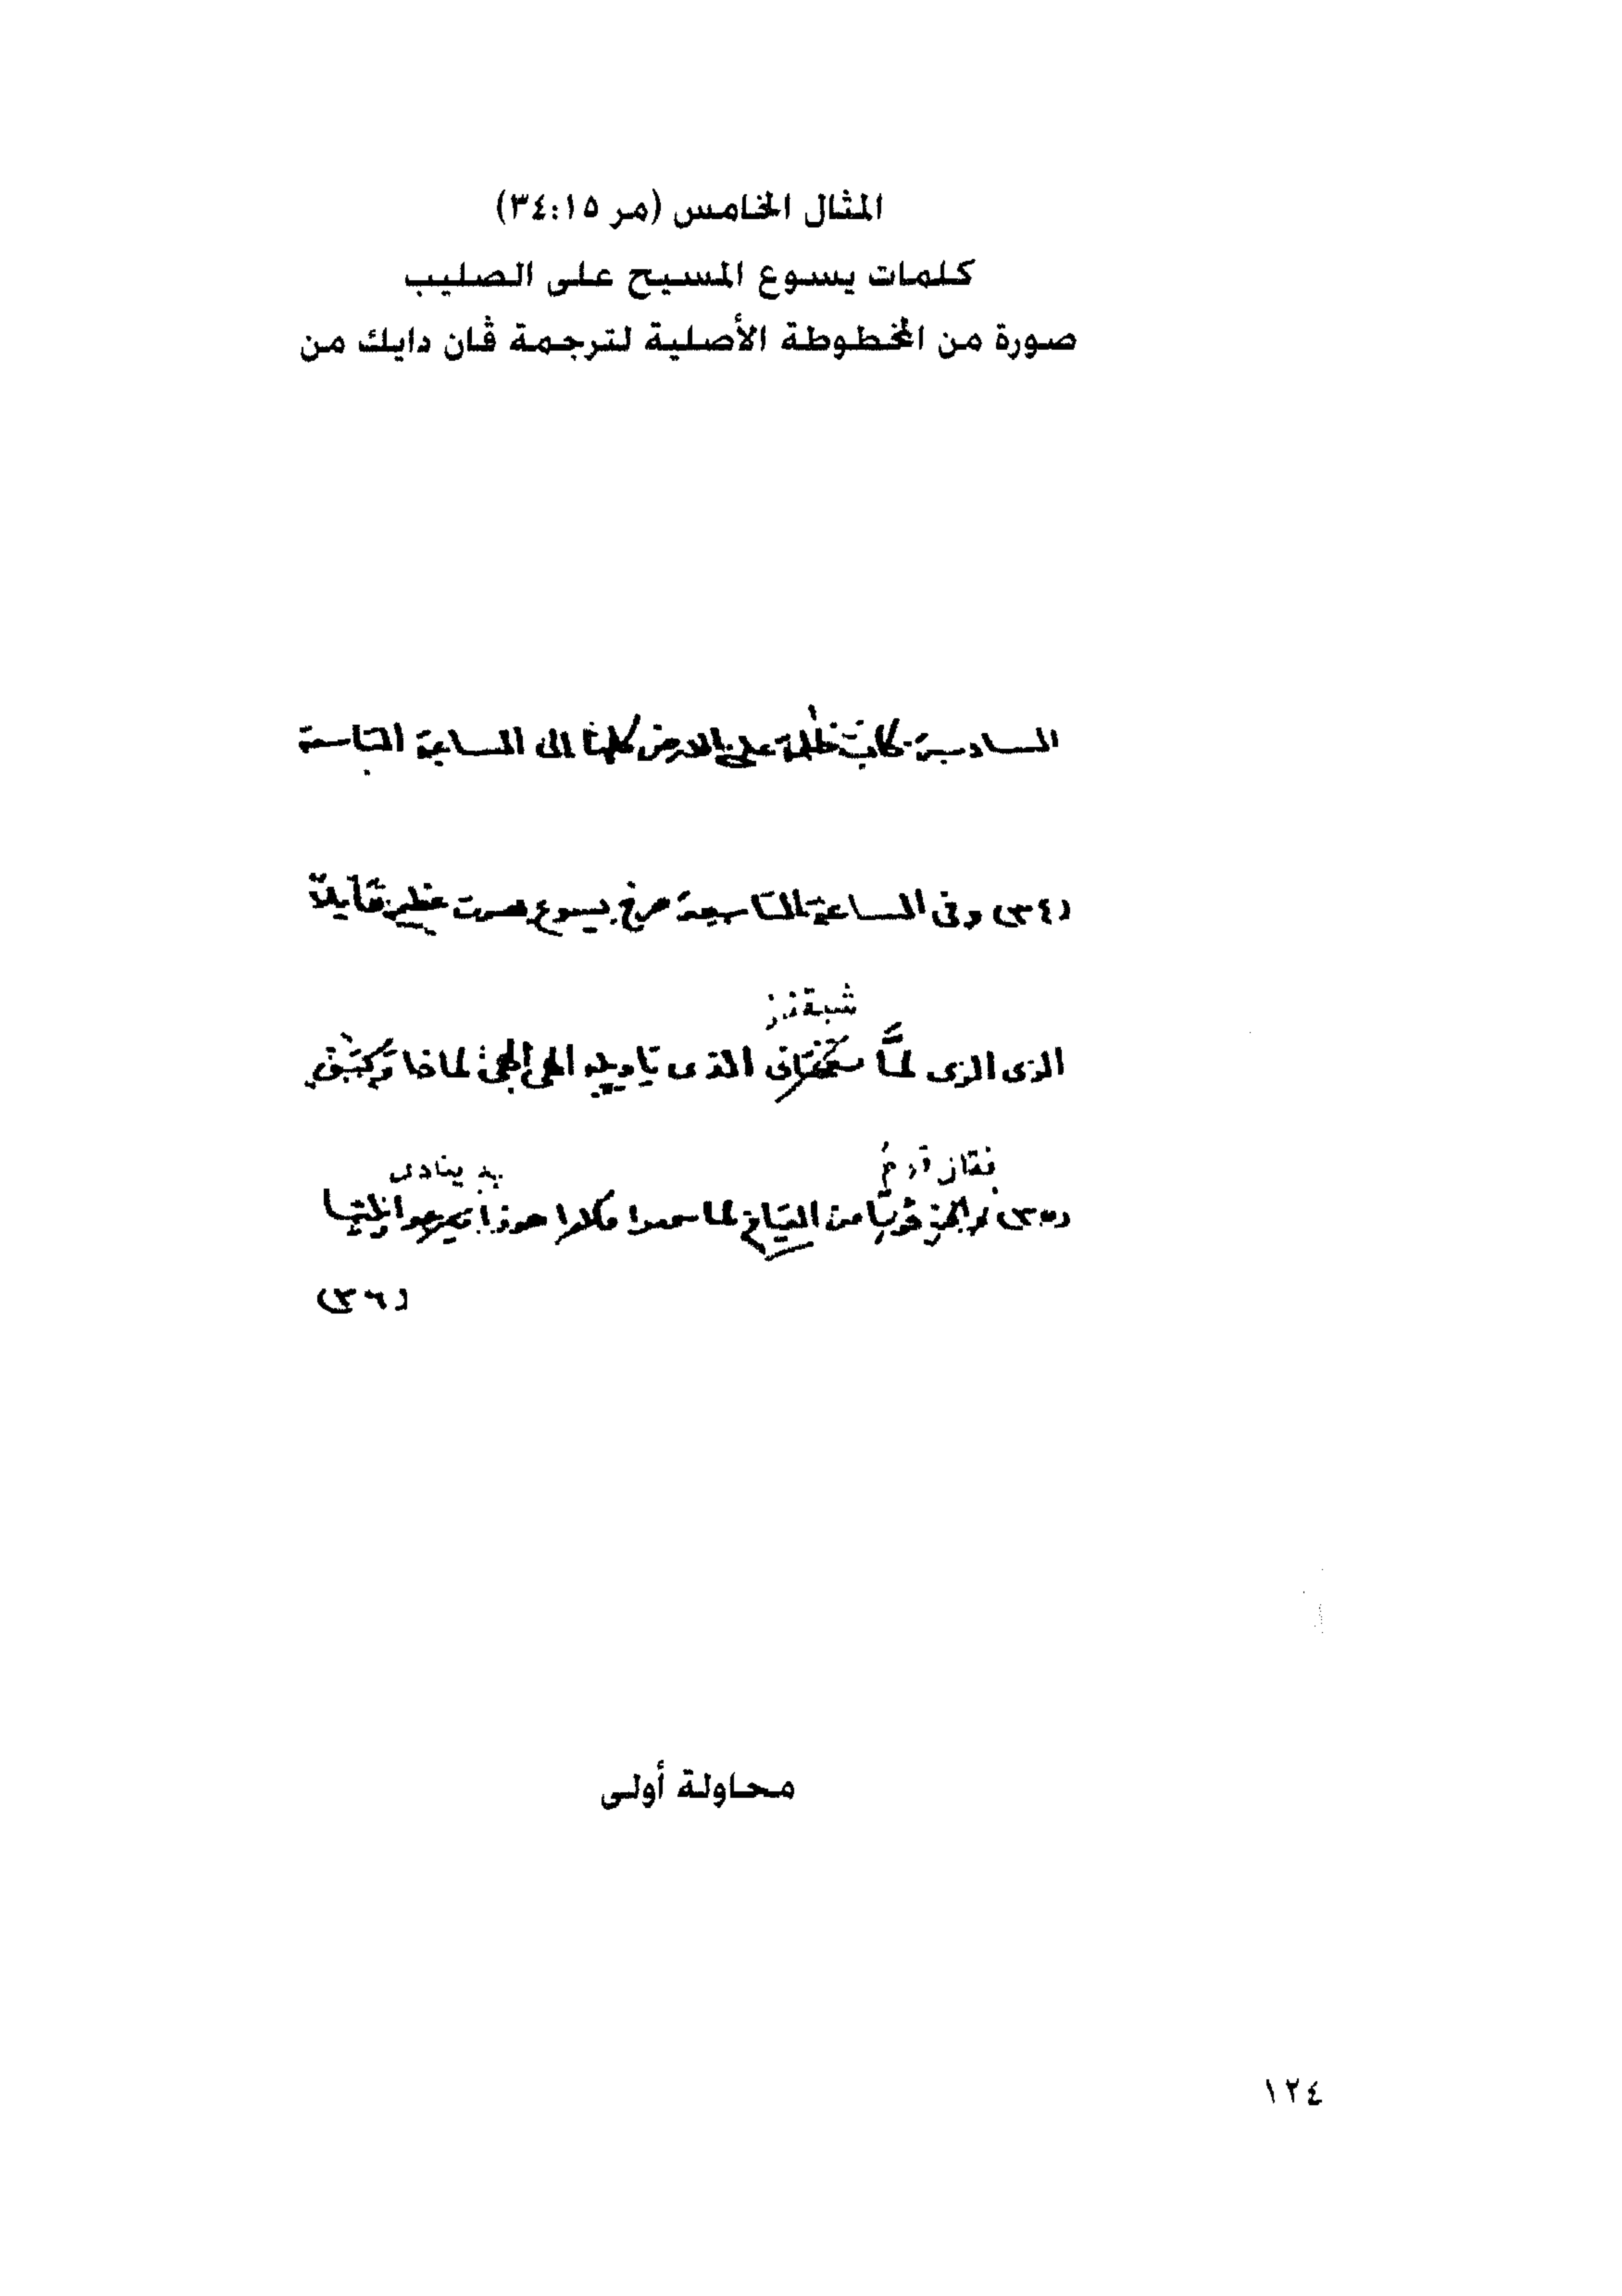 المثال الخامس (مر ١٥:٣٤)
كلمات يسوع المسيح على الصليب
صورة من المخطوطة الأصلية لترجمة ڤان دايك من
السادسة كانت ظلمة على الارض كلها الى الساعة التاسعة
(٣٤) وفى الساعة التاسعة صرخ يسوع بصوت عظيم قايلاً
الوى الوى لمَّا الذى تاويله الهى الهى لماذا تركتنى
فقال قوم ينادى
(٣٥) من لما سمعوا هوذا ايليا
(٣٦)
محاولة أولى
١٢٤